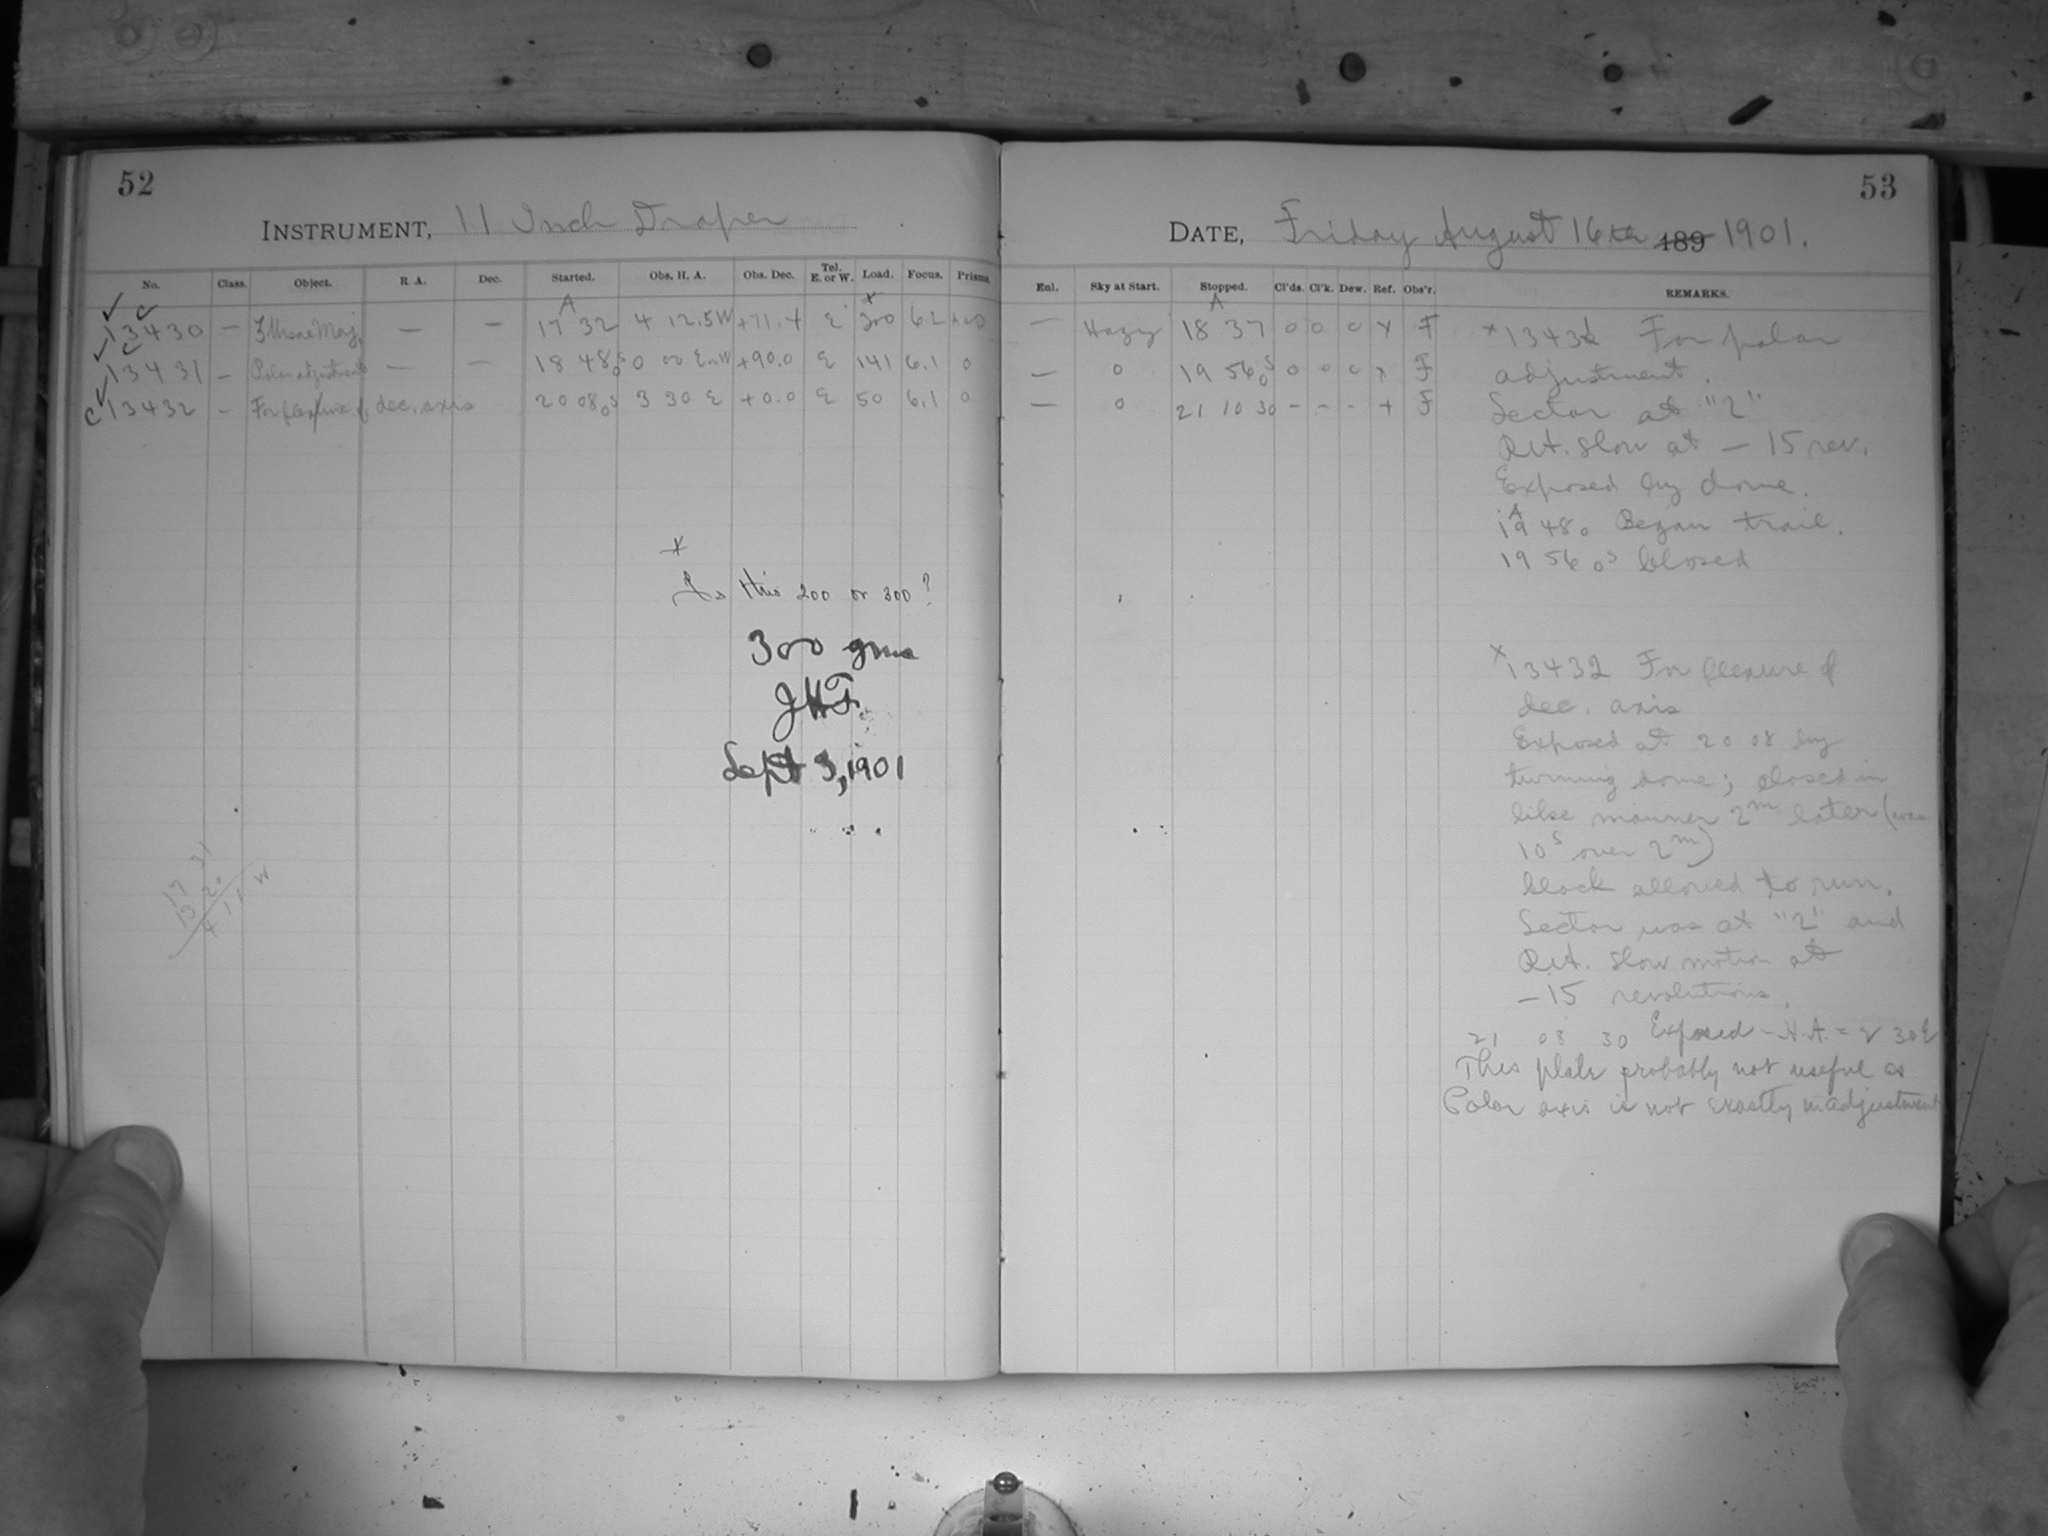 52
INSTRUMENT, 11 Inch Draper
No. Class. Object. R. A. Dec. Started. Obs. H. A. Obs. Dec. Tel. E. or W. Load. Focus. Prisms
✓13430 — Maj. — — A 17 32 4 12.5W +71.4 E x 300 6.2
✓13431 — Polar adjustment — — 18 48 0s 0 00 E W +90.0 E 141 6.1 0
C✓13432 — For flexure of dec. axis 20 08 0s 3 30 E +0.0 E 50 6.1 0
x
Is this 200 or 300?
300 gms
JHF.
Sept 3, 1901
17 31
13 20
4 11 W
53
DATE, Friday August 16th 189 1901.
Enl. Sky at Start. Stopped. Cl'ds. Cl'k. Dew. Ref. Obs'r. REMARKS.
— Hazy A 18 37 0 0 0 x F
— 0 19 56 0s 0 0 0 x F
— 0 21 10 30 - - - + F
x 13431 For polar
adjustment.
Sector at "2"
R.A. slow at — 15 rev.
Exposed by dome.
A 19 48 0 Began trail.
19 56 0s Closed
x 13432 For flexure of
dec. axis
Exposed at 20 08 by
turning dome; closed in
like manner 2m later (was
10s over 2m)
Clock allowed to run.
Sector was at "2" and
R.A. slow motion at
— 15 revolutions.
21 08 30 Exposed — H.A. = 30 E
This plate probably not useful as
Polar axis is not exactly in adjustment